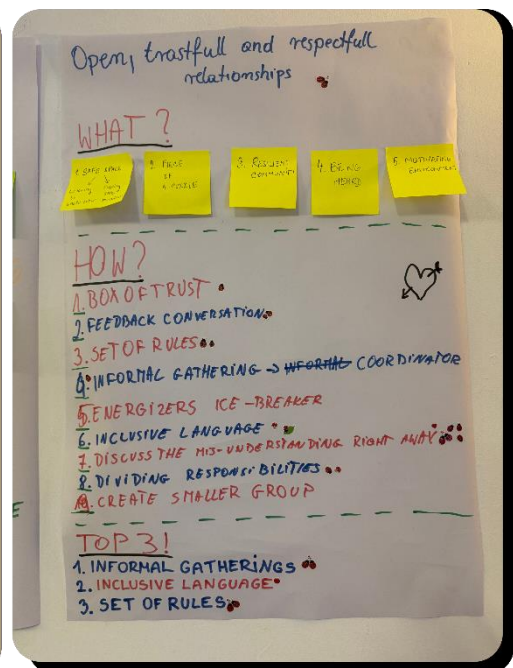 Open, trastfull and respectfull
relationships
WHAT?
1. SAFE SPACE
2. PIECE
OF
A PUZZLE
3. RESILIENT
COMMUNITY
4. BEING
5. MOTIVATING
ENVIRONMENT
HOW?
1. BOX OF TRUST
2. FEEDBACK CONVERSATION
3. SET OF RULES
4. INFORMAL GATHERING → INFORMAL COORDINATOR
5. ENERGIZERS ICE-BREAKER
6. INCLUSIVE LANGUAGE
7. DISCUSS THE MIS-UNDERSTANDING RIGHT AWAY
8. DIVIDING RESPONSIBILITIES
CREATE SMALLER GROUP
TOP 3!
1. INFORMAL GATHERINGS
2. INCLUSIVE LANGUAGE
3. SET OF RULES
E